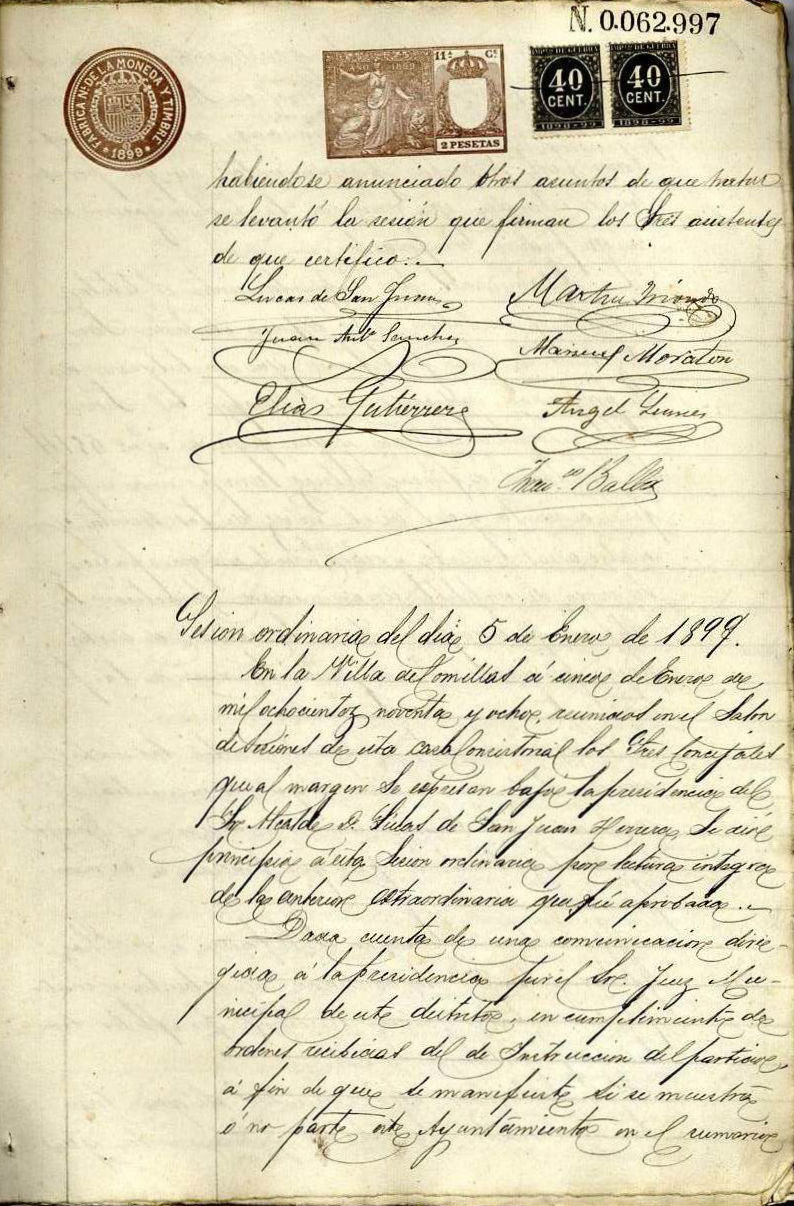 N. 0.062.997
FABRICA Nal. DE LA MONEDA Y TIMBRE
* 1899 *
AÑO 1899
11ª Cª
2 PESETAS
IMPto DE GUERRA
40
CENT.
1898-99
IMPto DE GUERRA
40
CENT.
1898-99
habiendose anunciado otros asuntos de que tratar
se levantó la sesión que firman los Sres asistentes
de que certifico.
Lucas de San Juan
Martin
Juan Antº Sanchez
Manuel Moraton
Elias Gutiérrez
Angel
Francco Balbas
Sesion ordinaria del dia 5 de Enero de 1899.
En la Villa de Comillas á cinco de Enero de
mil ochocientos noventa y ocho, reunidos en el Salon
de Sesiones de esta casa Consistorial los Sres Concejales
que al margen se espresan bajo la presidencia del
Sr Alcalde D. Lucas de San Juan Herrera, se dió
principio á esta Sesion ordinaria por lectura integra
de la anterior extraordinaria que fué aprobada.
Dada cuenta de una comunicacion diri-
gida á la presidencia por el Sr. Juez Mu-
nicipal de este distrito, en cumplimiento de
ordenes recibidas del de Instruccion del partido,
á fin de que se manifieste si se muestra
ó no parte este Ayuntamiento en el sumario